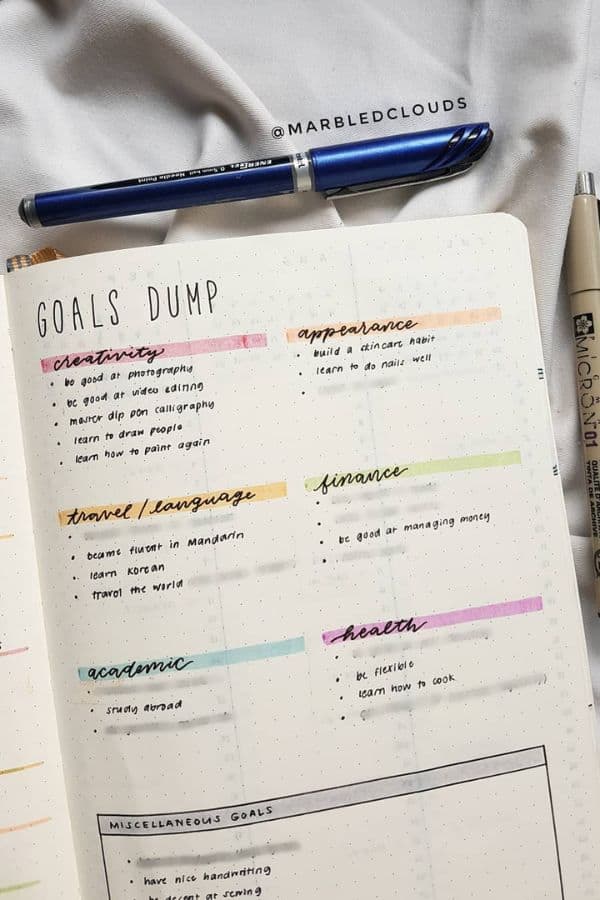 @MARBLEDCLOUDS
ENERGEL 0.5mm ball Needle Point
GOALS DUMP
creativity
• be good at photography
• be good at video editing
• master dip pen calligraphy
• learn to draw people
• learn how to paint again
appearance
• build a skincare habit
• learn to do nails well
•
travel / language
•
• became fluent in Mandarin
• learn Korean
• travel the world
finance
•
•
• be good at managing money
•
academic
•
• study abroad
•
health
•
• be flexible
• learn how to cook
•
MISCELLANEOUS GOALS
•
• have nice handwriting
be decent at sewing
MICRON 01